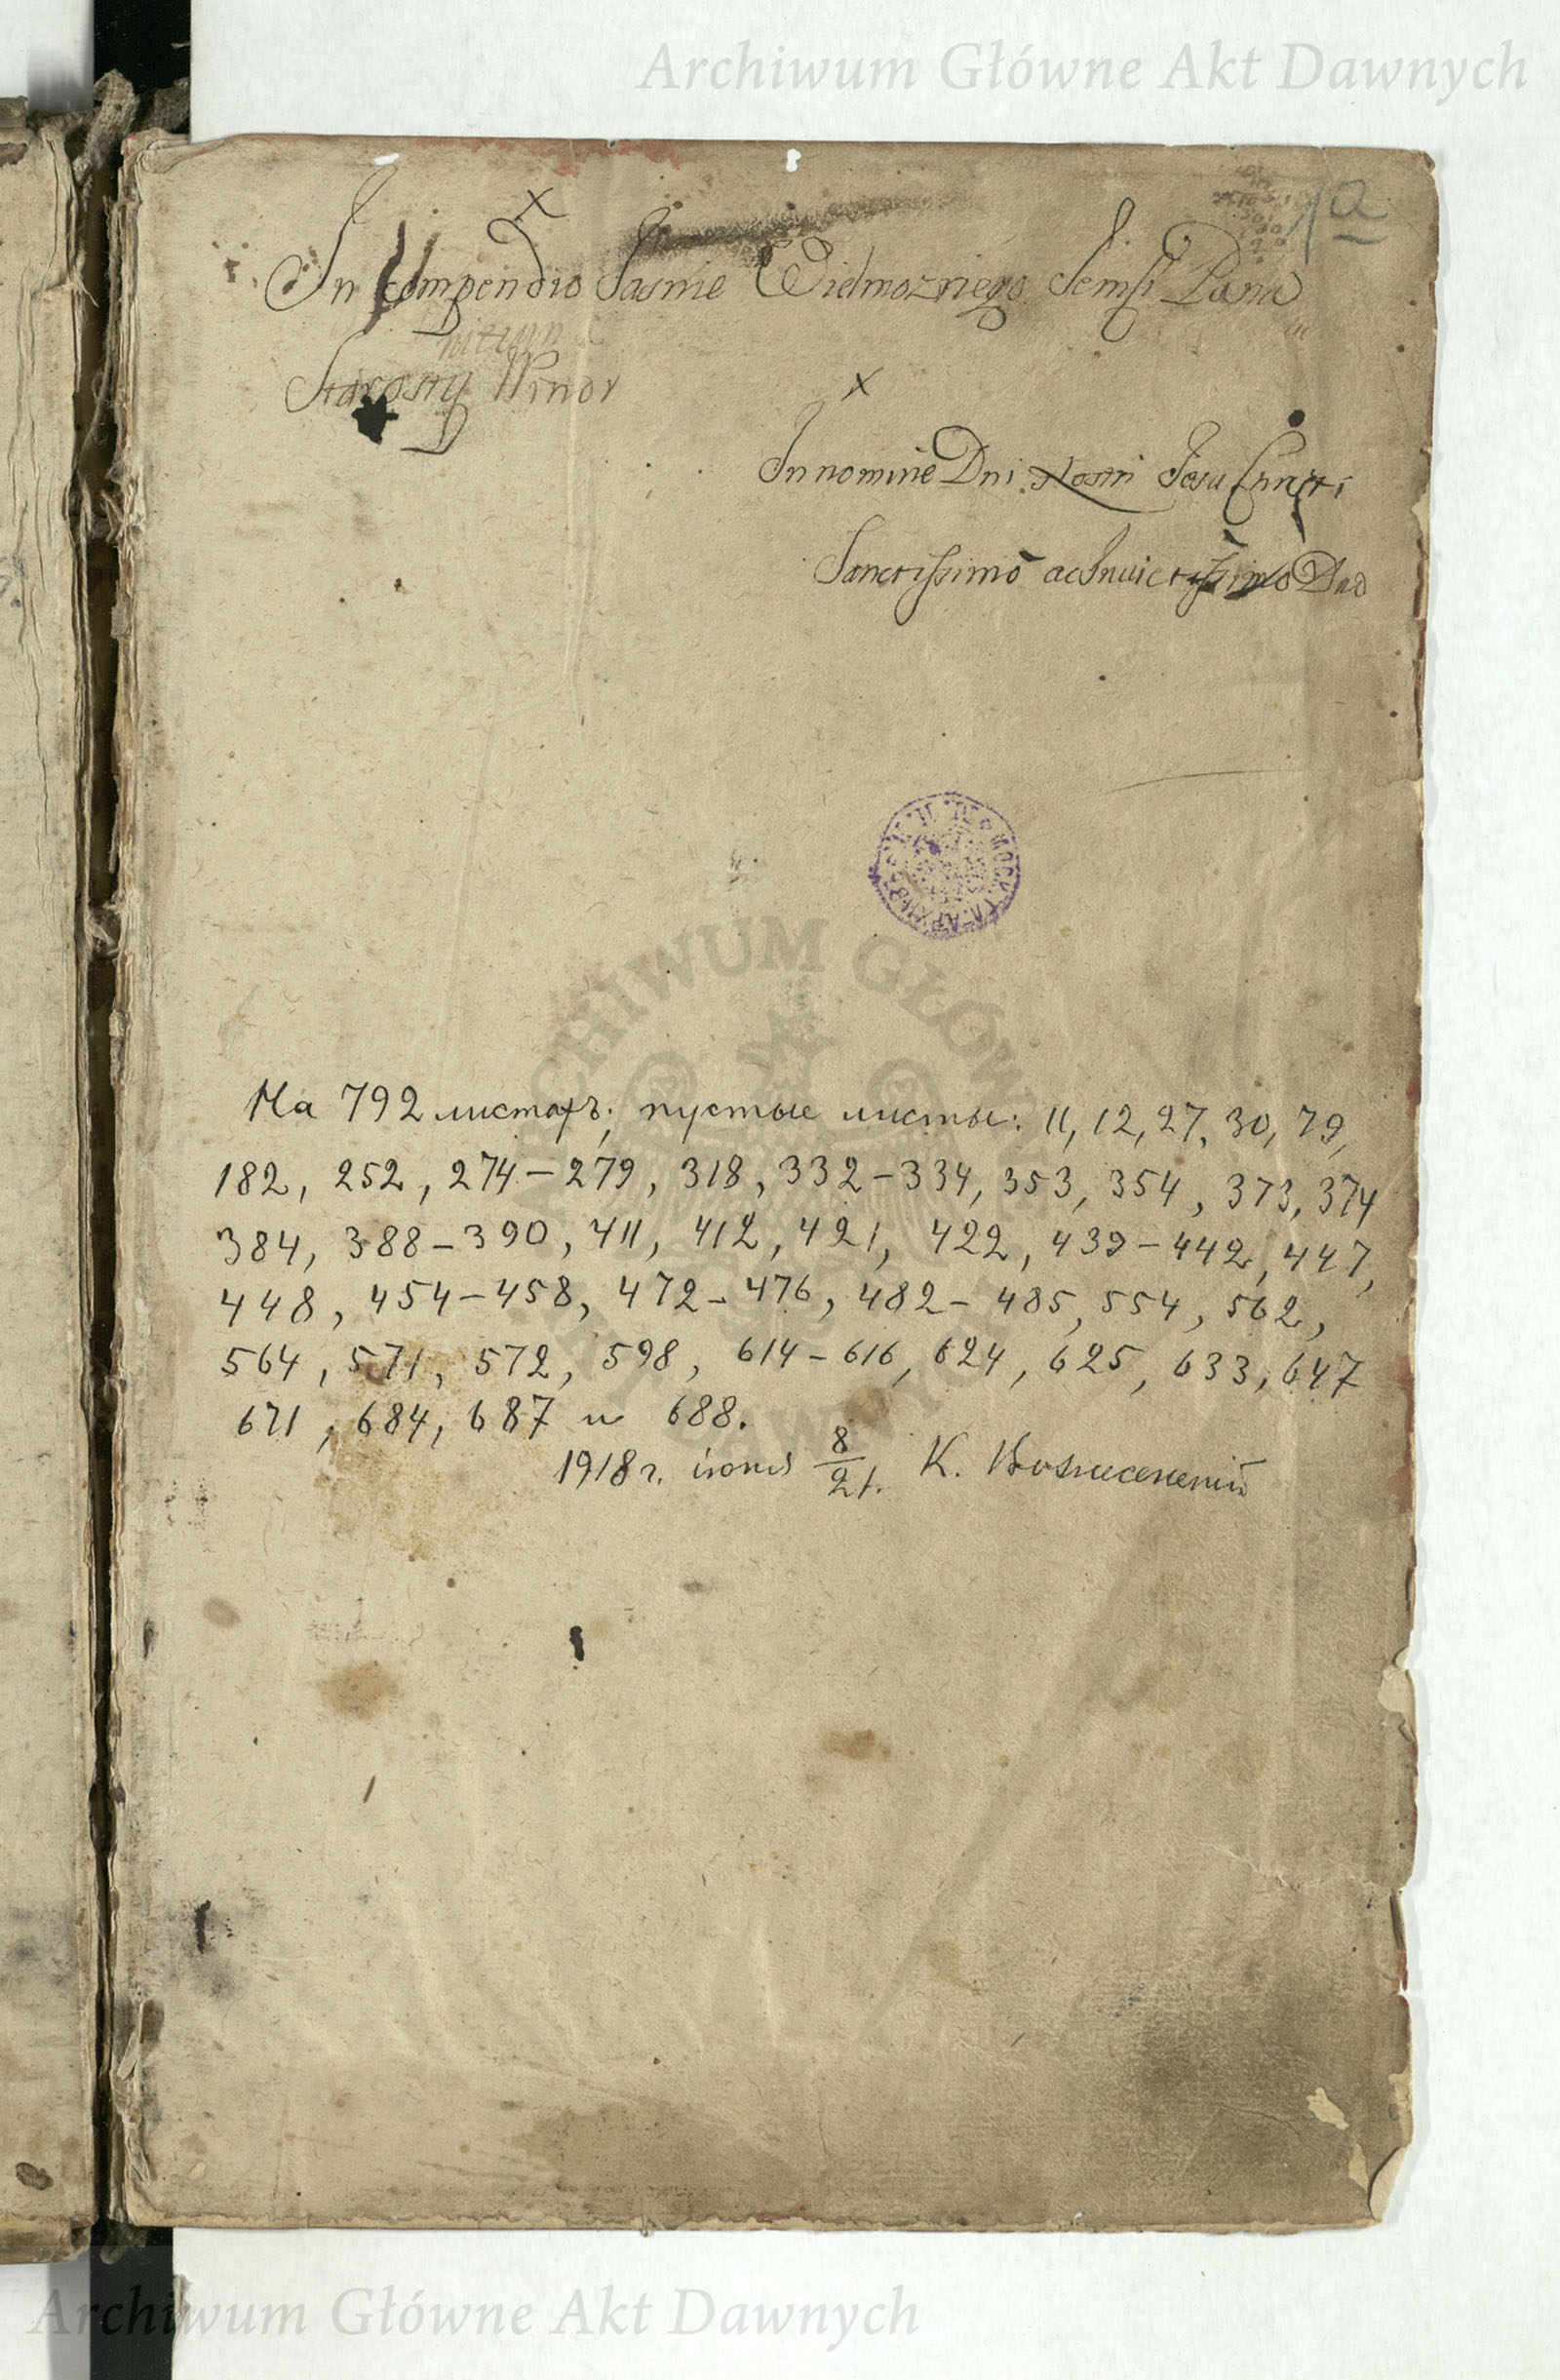 Archiwum Główne Akt Dawnych
1a
In Compendio Jasnie Wielmozniego Jemsci Pana
Starosty Winor
In nomine Dni Nostri Jesu Christi
Sanctissimo ac Inuictissimo Dno
ARCHIWUM GŁÓWNE
На 792 листахъ; пустые листы: 11, 12, 27, 30, 79,
182, 252, 274–279, 318, 332–334, 353, 354, 373, 374
384, 388–390, 411, 412, 421, 422, 439–442, 447,
448, 454–458, 472–476, 482–485, 554, 562,
564, 571, 572, 598, 614–616, 624, 625, 633, 647
671, 684, 687 и 688.
1918 г. іюня 8/21. К. Вознесенский
Archiwum Główne Akt Dawnych